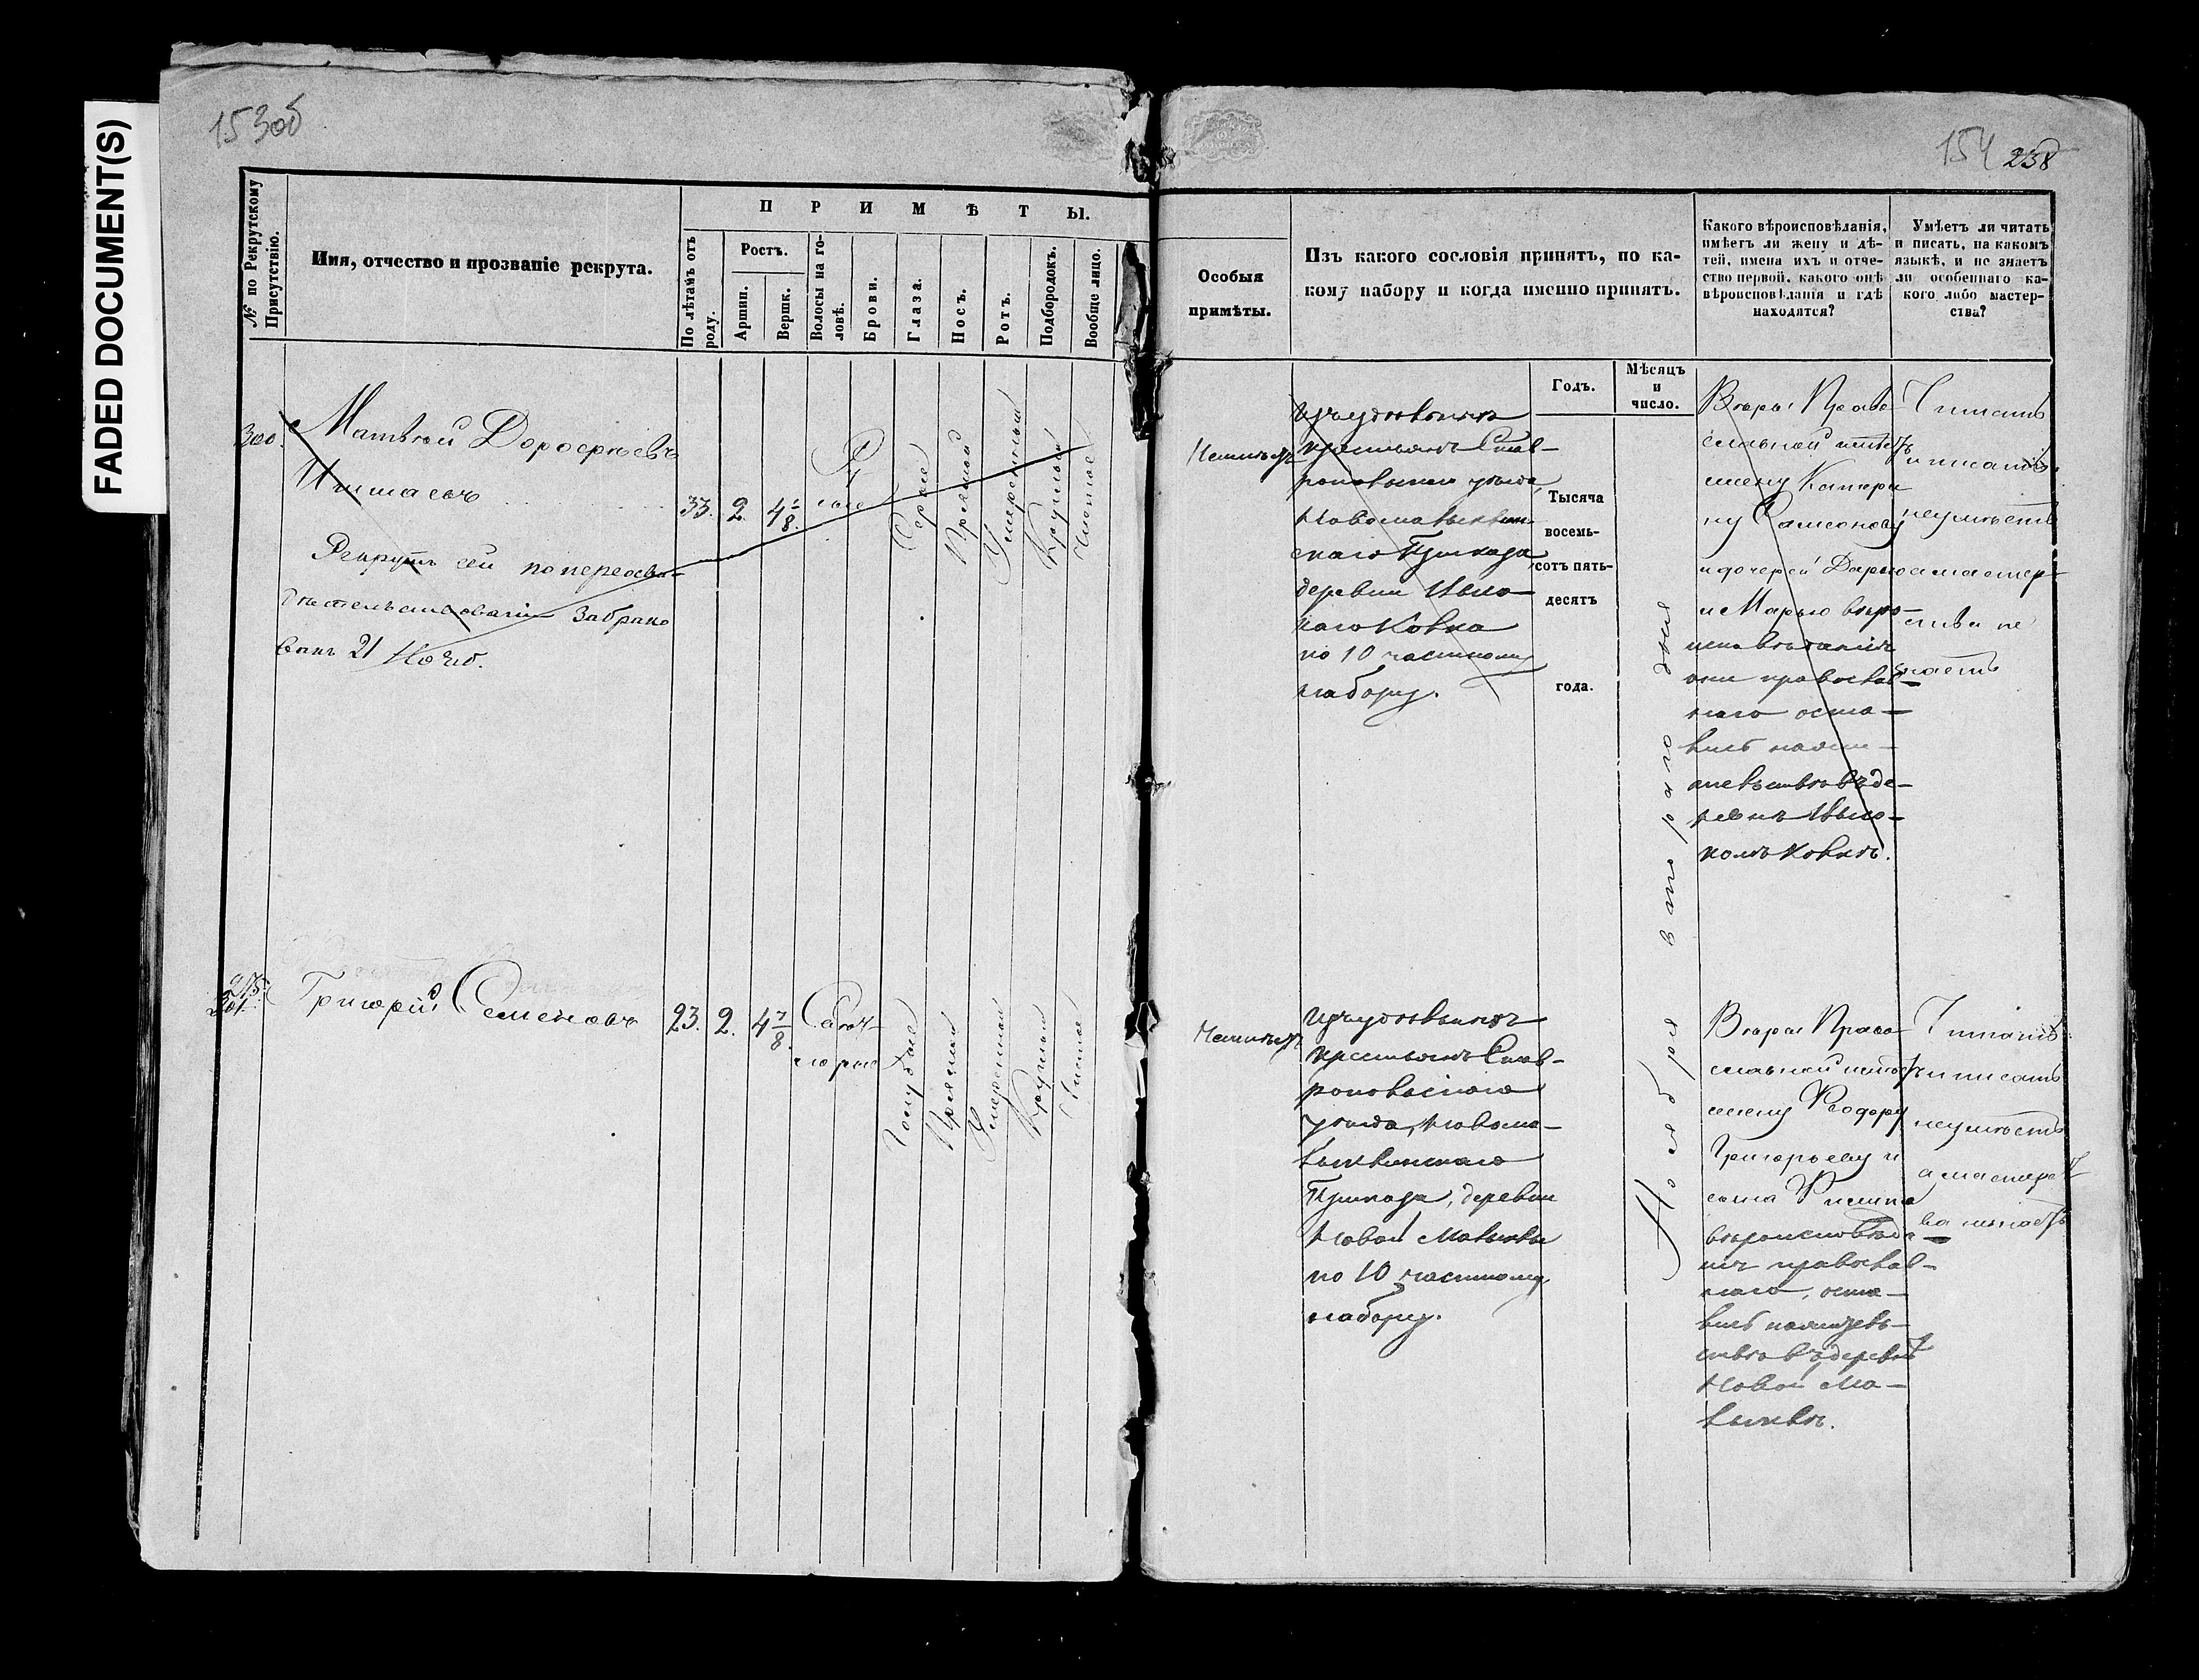 FADED DOCUMENT(S)
153об
154 238
№ по Рекрутскому
Присутствію.
Имя, отчество и прозваніе рекрута.
П Р И М Ѣ Т Ы.
По лѣтамъ отъ
роду.
Ростъ.
Аршин.
Вершк.
Волосы на го-
ловѣ.
Брови.
Глаза.
Носъ.
Ротъ.
Подбородокъ.
Вообще лицо.
Особыя
примѣты.
Изъ какого сословія принятъ, по ка-
кому набору и когда именно принятъ.
Какого вѣроисповѣданія,
имѣетъ ли жену и дѣ-
тей, имена ихъ и отче-
ство первой, какого онѣ
вѣроисповѣданія и гдѣ
находятся?
Умѣетъ ли читать
и писать, на какомъ
языкѣ, и не знаетъ
ли особеннаго ка-
кого либо мастер-
ства?
Годъ.
Мѣсяцъ
и
число.
300.
Матвей Дорофеевъ
Рекрутъ сей по переосви-
дѣтельствованіи забрако
ванъ 21 Нояб.
33. 2 4 1/8
Русые
Серые
Прямой
Умеренный
Круглый
Чистое
Неимѣетъ
изъ удѣльныхъ
крестьянъ Став-
ропольскаго уезда
Новомалыклин-
скаго Приказа
деревни
по 10 частному
набору.
Тысяча
восемь-
сотъ пять-
десятъ
года.
Ноября втораго дня
Веры Право
славной имѣетъ
жену Катери
ну Самсонову
и дочерей Дарью
и Марью веро-
исповѣданія
они православ-
наго оста-
вилъ
въ де-
ревнѣ
Читать
и писать
неумѣетъ
а мастер-
ства не
знаетъ
215.
301.
Григорій Семеновъ
23. 2. 4 7/8.
Голубые
Прямой
Умеренной
Круглой
Чистое
Неимѣетъ
изъ удѣльныхъ
крестьянъ Став-
ропольскаго
уезда, Новома-
лыклинскаго
Приказа, деревни
Новой Малыклы
по 10 частному
набору.
Веры Право
славной имѣетъ
жену Феодору
Григорьеву и
сына Филипа
вероисповѣда-
нія православ-
наго, оста-
вилъ
въ деревнѣ
Новой Ма-
лыклѣ.
Читать
и писать
неумѣетъ
а мастерст
ва незнаетъ